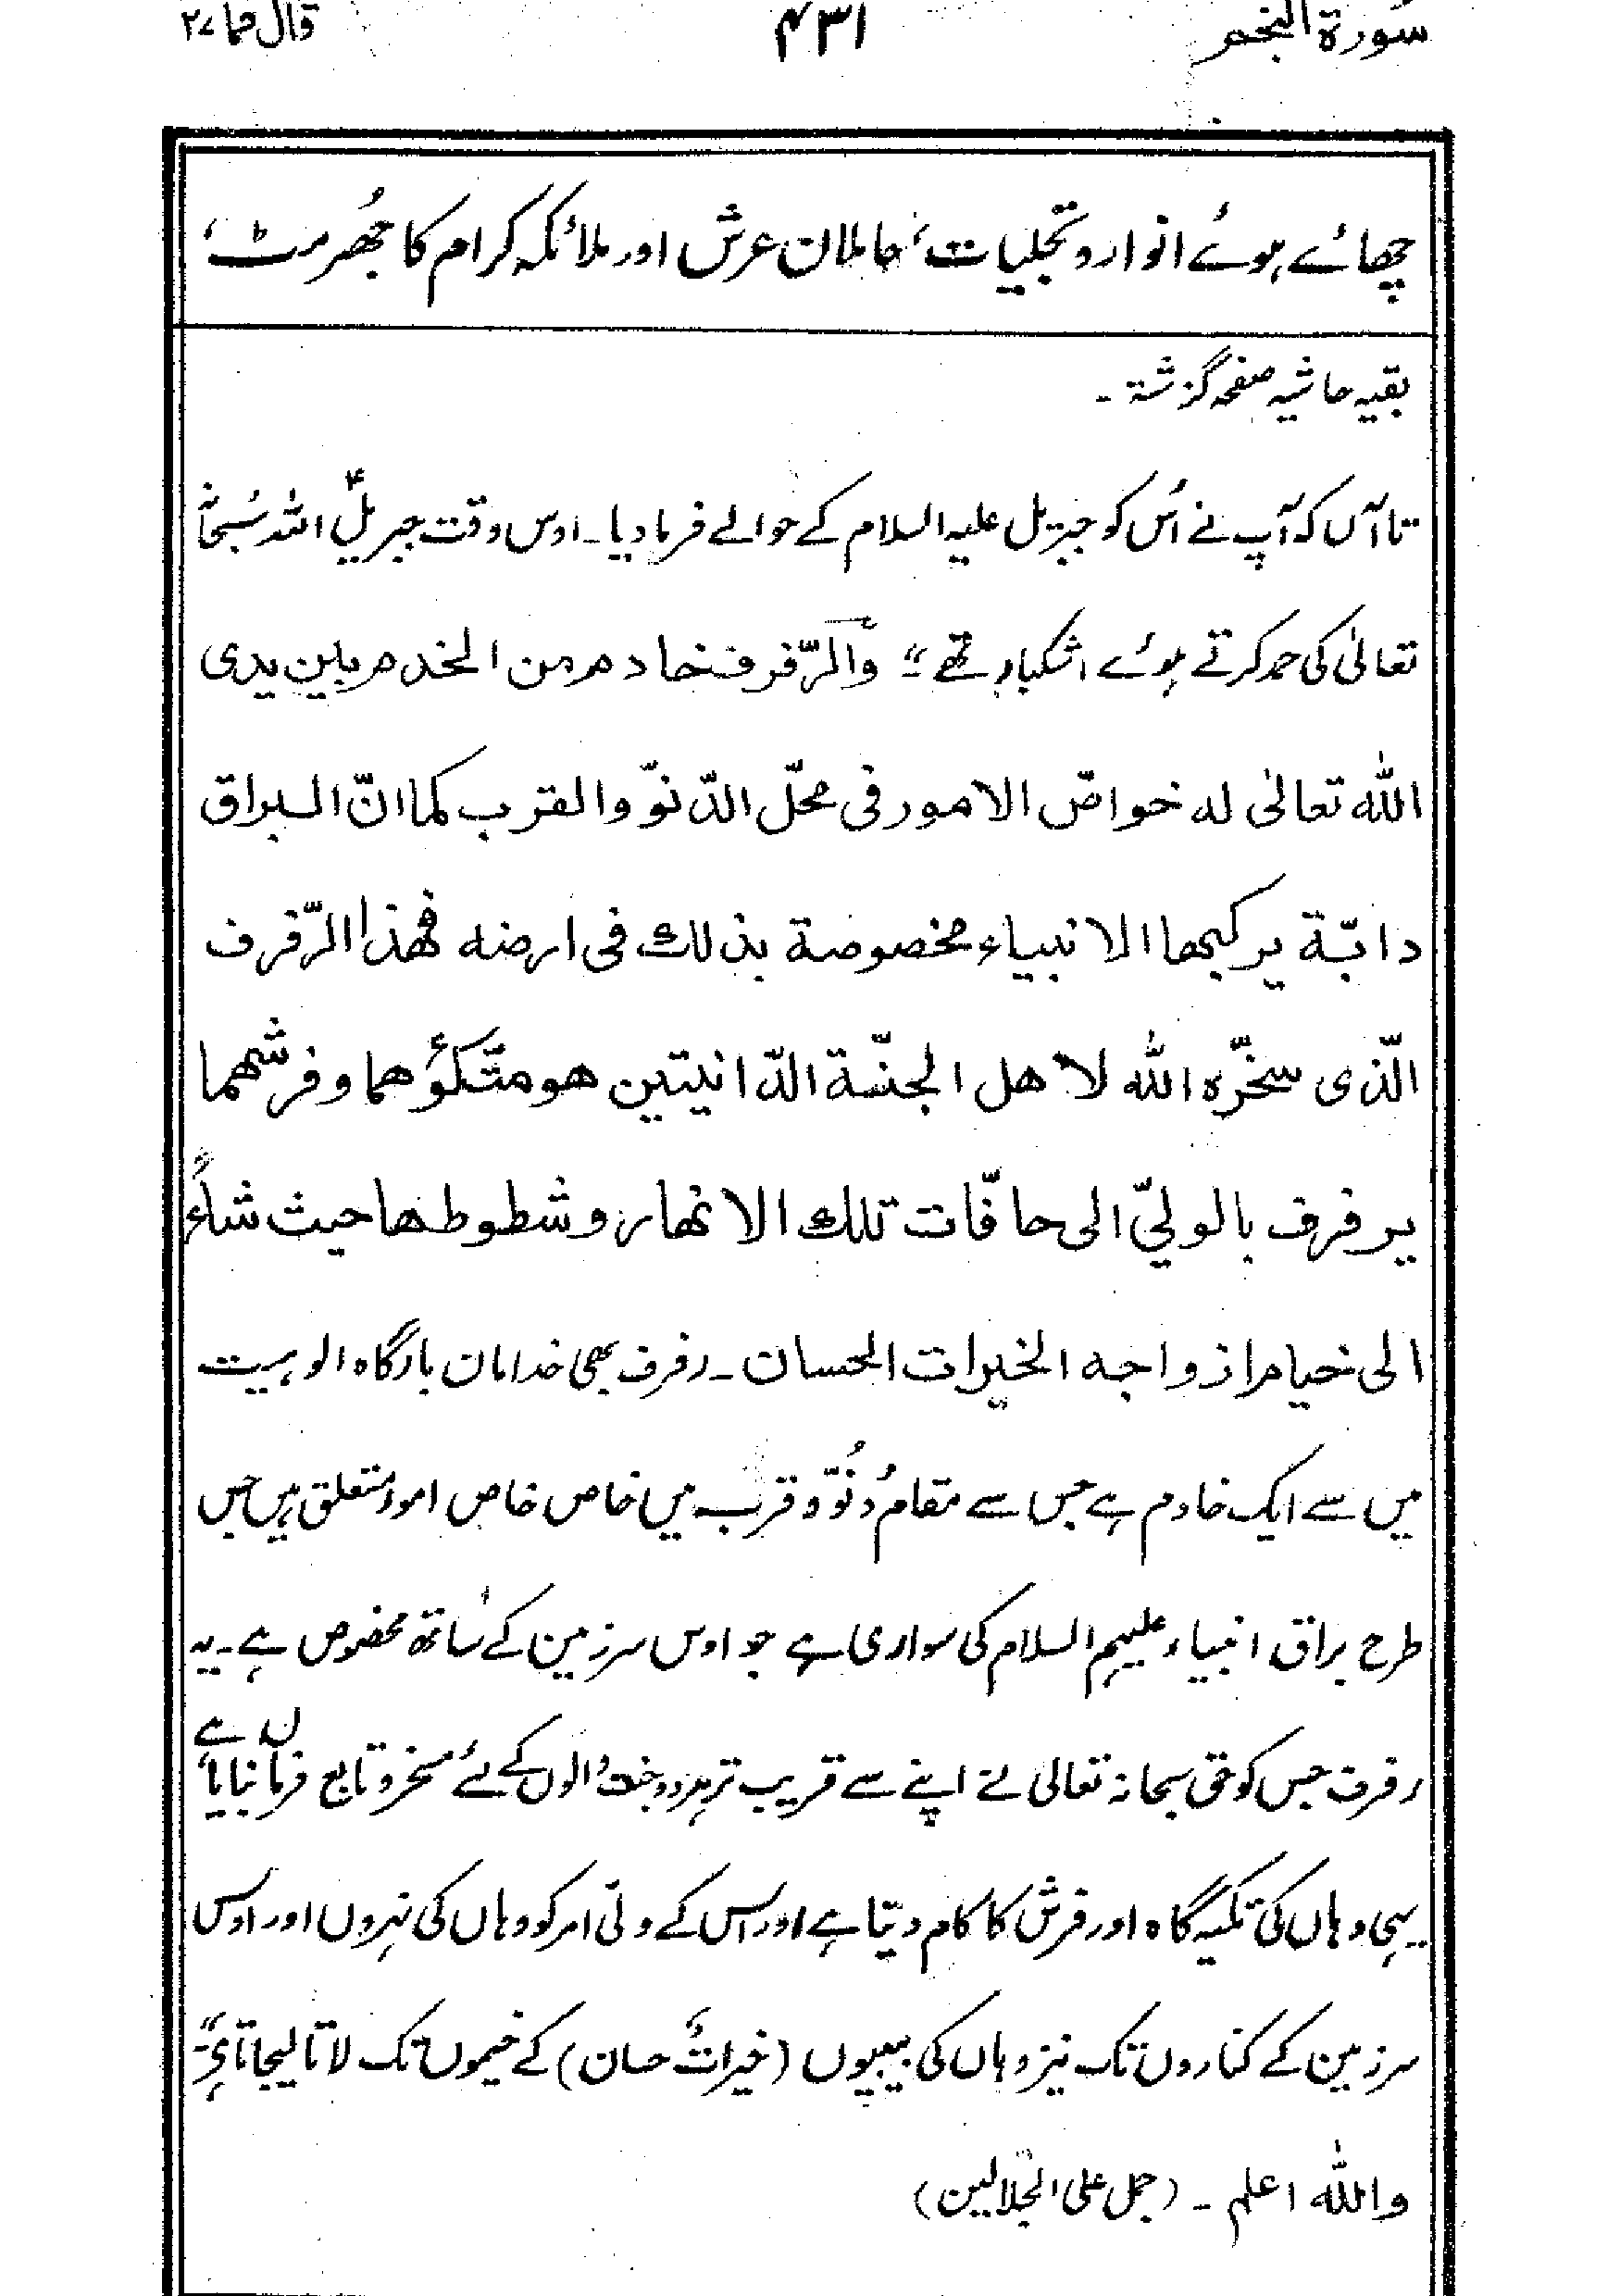 سورة النجم ۴۳۱ قال فما ۲۷
چھائے ہوئے انوار و تجلیات، حاملان عرش اور ملائکہ کرام کا جھُرمٹ،
بقیہ حاشیہ صفحہ گزشتہ ۔
تاآں کہ آپ نے اُس کو جبرئیل علیہ السلام کے حوالے فرما دیا۔ اوس وقت جبریلؑ اللہ سُبحانہٗ
تعالیٰ کی حمد کرتے ہوئے اشکبار تھے “ والرّفرف خادم من الخدم بین یدی
اللہ تعالیٰ له خواصّ الامور فی محلّ الدّنوّ والقرب کما انّ البراق
دابّة یرکبها الانبیاء مخصوصة بذلك فی ارضه فهذا الرّفرف
الّذی سخّره اللہ لاهل الجنّة الدّانیتین هو متّکؤهما وفرشهما
یرفرف بالولیّ الی حافّات تلك الانهار و شطوطها حیث شاء
الی خیام ازواجه الخیرات الحسان ۔ رفرف بھی خدامان بارگاہ الوہیت
میں سے ایک خادم ہے جس سے مقام دُنُوّ و قرب میں خاص خاص امور متعلق ہیں جس
طرح براق انبیاء علیہم السلام کی سواری ہے جو اوس سرزمین کے ساتھ مخصوص ہے۔ یہ
رفرف جس کو حق سبحانہ تعالی نے اپنے سے قریب تر ہر دو جنت والوں کے لئے مسخر و تابع فرمان بنایا ہے
یہی وہاں کی تکیہ گاہ اور فرش کا کام دیتا ہے اور اس کے ولی امر کو وہاں کی نہروں اور اوس
سرزمین کے کناروں تک نیز وہاں کی بیبیوں (خیراتٌ حسان) کے خیموں تک لاتا لیجاتا ہے “
واللہ اعلم ۔ (جمل علی الجلالین)